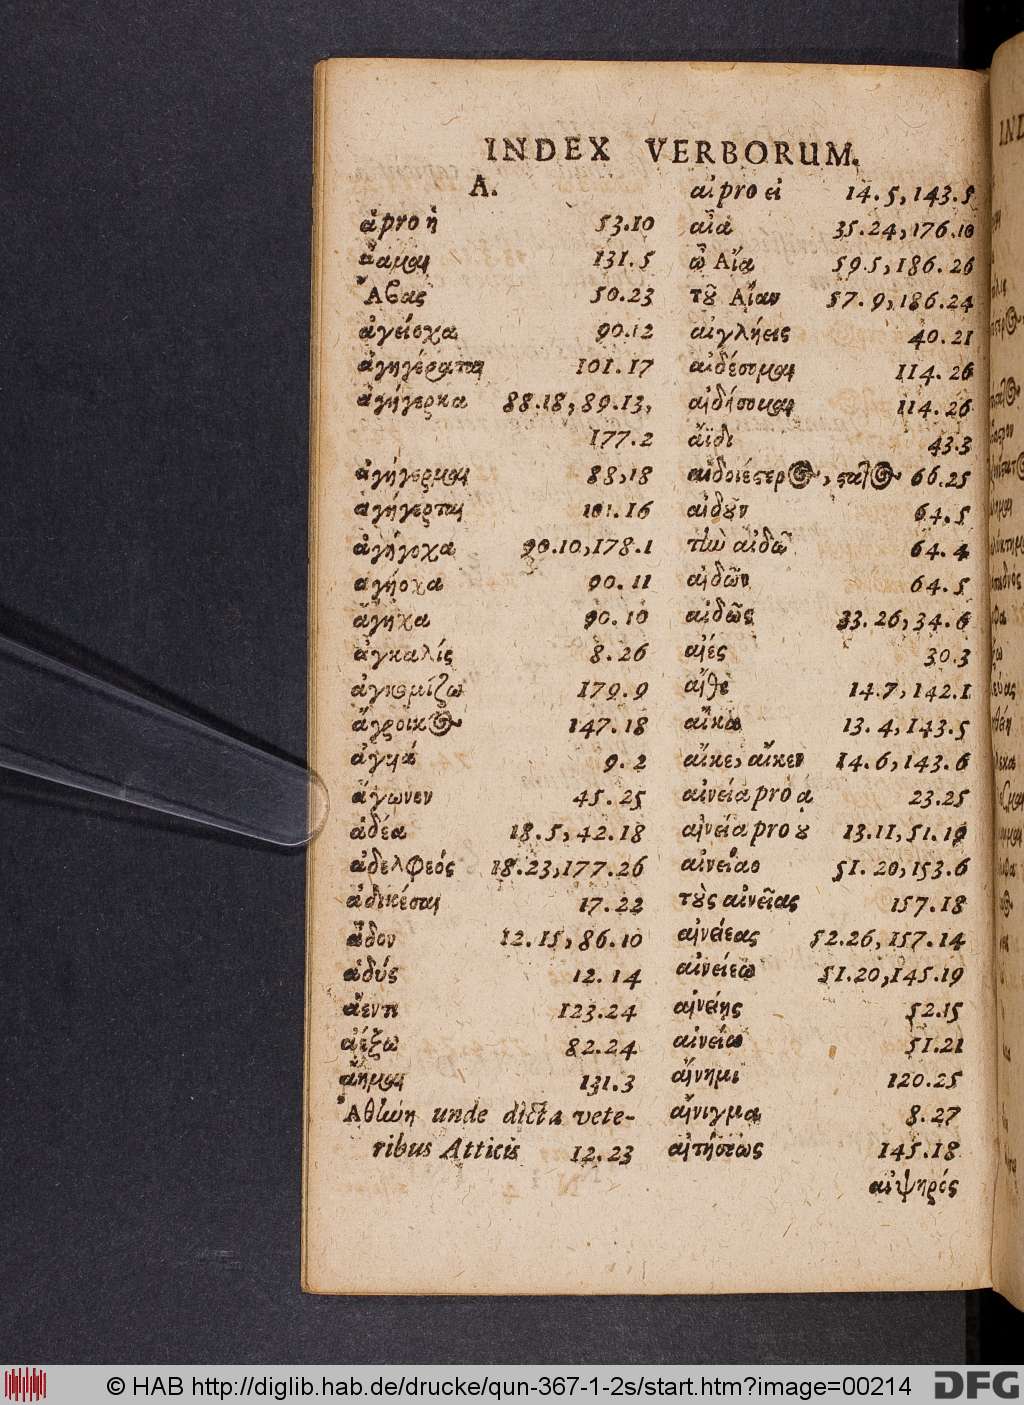 INDEX VERBORUM.
A.
ἀ pro ἡ 53.10
ἄαμαι 131.5
Ἄβας 50.23
ἀγείοχα 90.12
ἀγηγέραται 101.17
ἀγήγερκα 88.18, 89.13,
177.2
ἀγήγερμαι 88,18
ἀγήγερται 101.16
ἀγήγοχα 90.10, 178.1
ἀγήοχα 90.11
ἄγηχα 90.10
ἀγκαλίς 8.26
ἀγκομίζω 179.9
ἄγροικος 147.18
9.2
ἄγωνεν 45.25
ἀδέα 18.5, 42.18
ἀδελφεός 18.23, 177.26
ἀδικέσαι 17.22
ἇδον 12.15, 86.10
ἁδύς 12.14
ἄεντι 123.24
ἀέξω 82.24
ἄημαι 131.3
Ἀθηνῶη unde dicta vete-
ribus Atticis 12.23
αἰ pro εἰ 14.5, 143.5
αἶα 35.24, 176.10
ὦ Αἴα 59.5, 186.26
τοῦ Αἴαν 57.9, 186.24
αἰγλήεις 40.21
αἰδέσομαι 114.26
αἰδήσομαι 114.26
ἄϊδι 43.3
αἰδοιέστερος, στατος 66.25
αἰδοῦν 64.5
τὴν αἰδῶ 64.4
αἰδῶν 64.5
αἰδῶς 33.26, 34.6
αἰές 30.3
αἴθε 14.7, 142.1
αἴκα 13.4, 143.5
αἴκε, αἴκεν 14.6, 143.6
αἰνεία pro ᾳ 23.25
αἰνεία pro ου 13.11, 51.19
αἰνείαο 51.20, 153.6
τοὺς αἰνείας 157.18
αἰνείεας 52.26, 157.14
αἰνείεω 51.20, 145.19
αἰνείης 52.15
αἰνείω 51.21
αἴνημι 120.25
αἴνιγμα 8.27
αἰτήσεως 145.18
αἰψηρός
© HAB http://diglib.hab.de/drucke/qun-367-1-2s/start.htm?image=00214
DFG